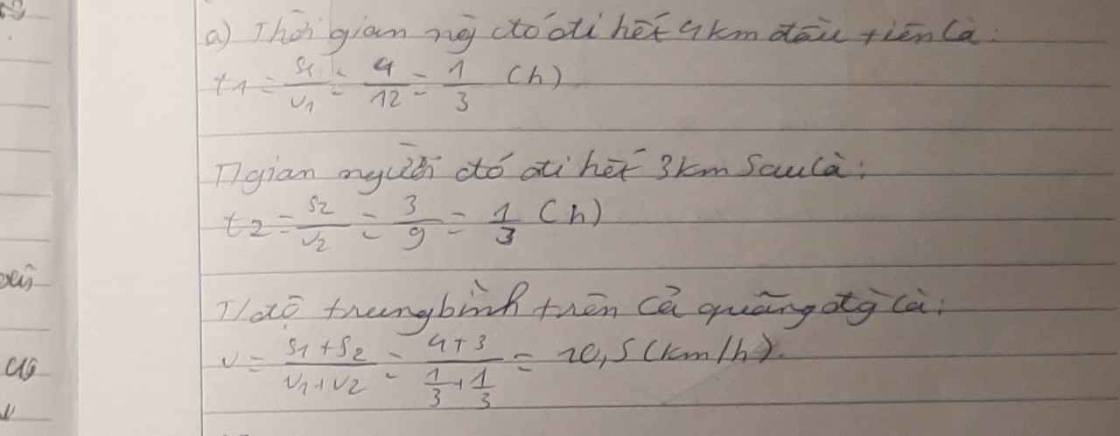 a) Thời gian ng đó đi hết 4km đầu tiên là:
t1 = s1/v1 = 4/12 = 1/3 (h)
T/gian người đó đi hết 3km sau là:
t2 = s2/v2 = 3/9 = 1/3 (h)
T/độ trung bình trên cả quãng đg là:
v = s1+s2/v1+v2 = 4+3/1/3+1/3 = 10,5 (km/h).